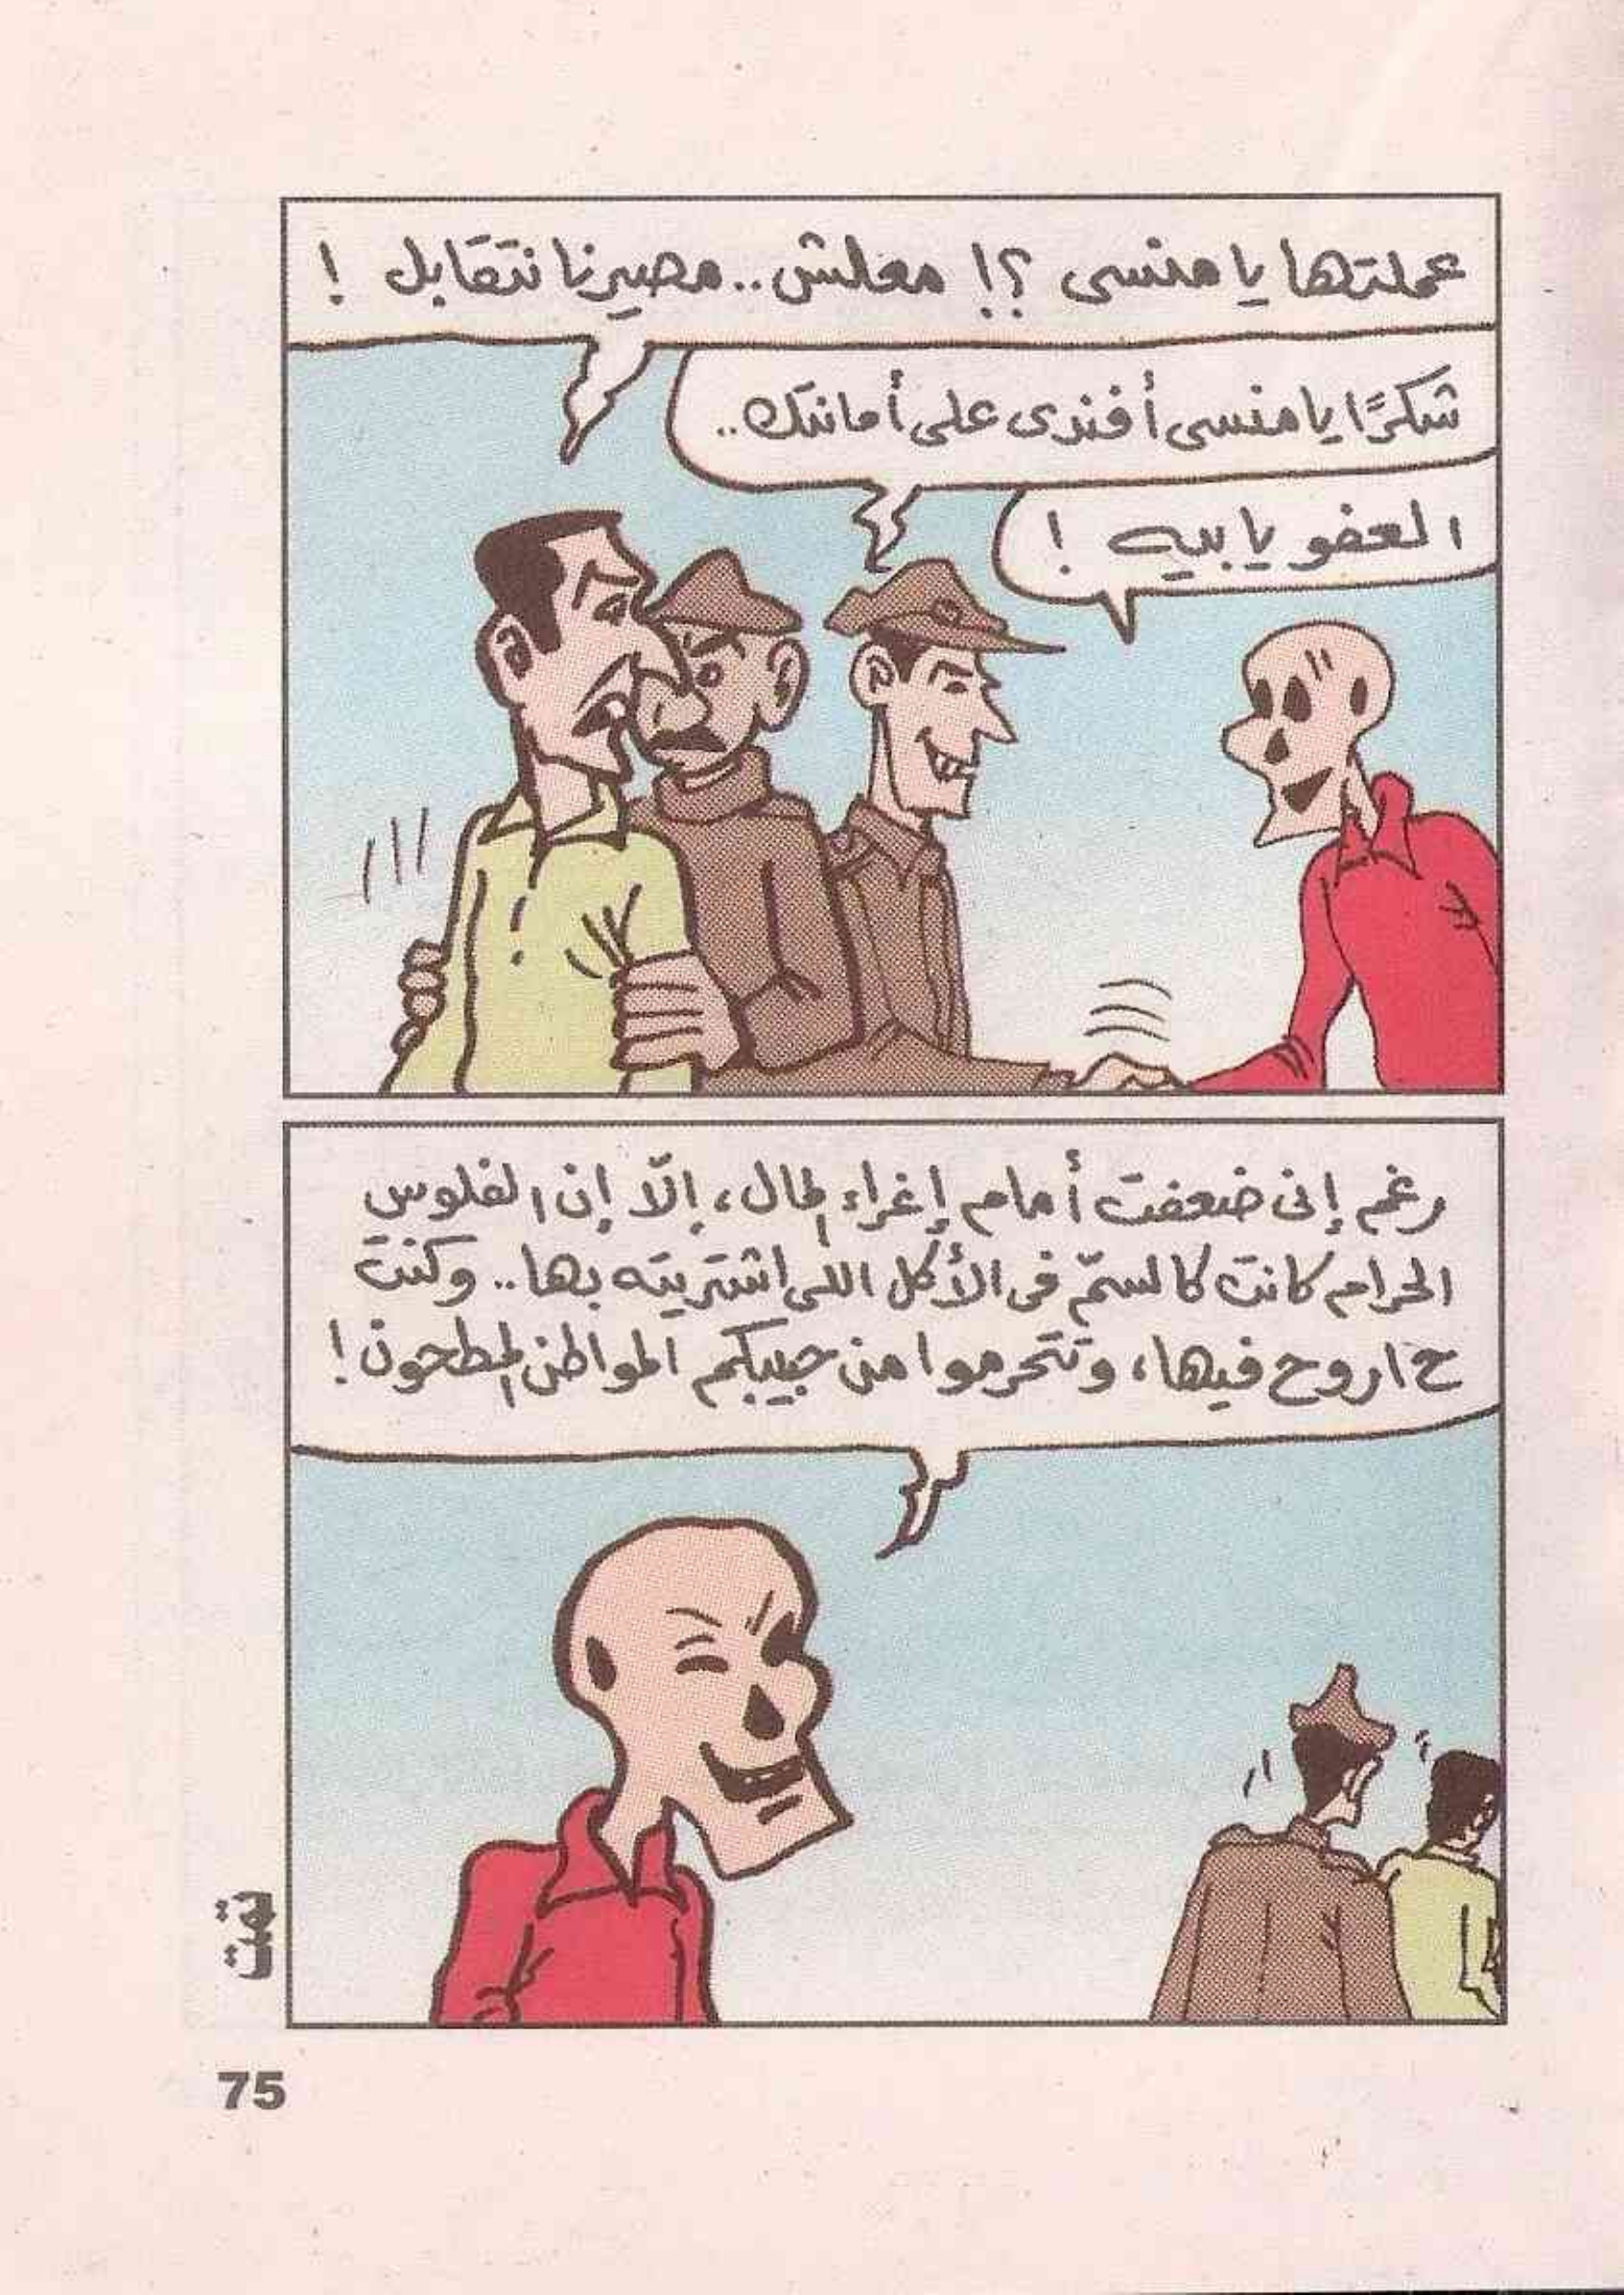 عملتها يا منسى ؟! معلش.. مصيرنا نتقابل !
شكرًا يا منسى أفندى على أمانتك..
العفو يا بيه !
رغم إنى ضعفت أمام إغراء المال، إلّا إن الفلوس
الحرام كانت كالسمّ فى الأكل اللى اشتريته بها.. وكنت
ح اروح فيها، وتتحرموا من حبيبكم المواطن المطحون!
تمت
75